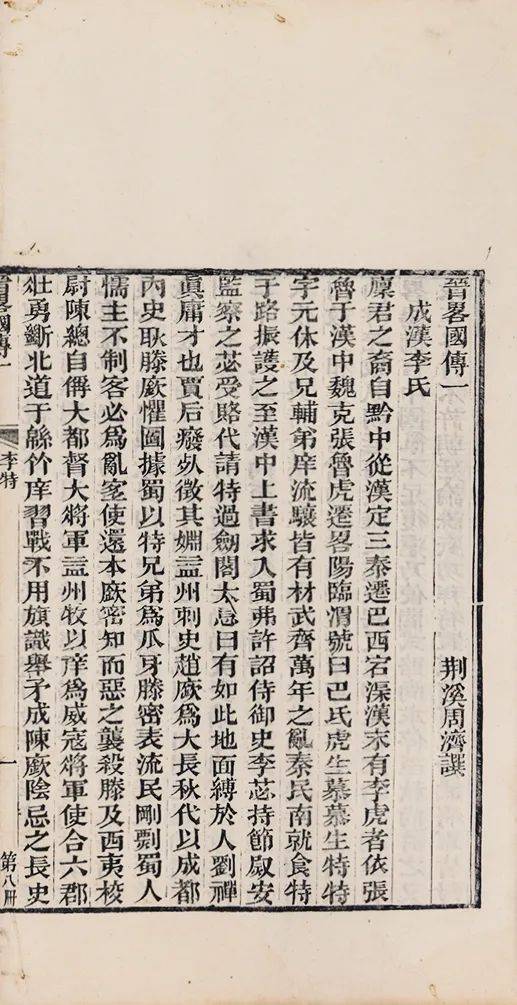 晉畧國傳一
荆溪周濟譔
成漢李氏
廪君之裔自黔中從漢定三秦遷巴西宕渠漢末有李虎者依張
魯于漢中魏克張魯虎遷畧陽臨渭號曰巴氐虎生慕慕生特特
字元休及兄輔弟庠流驤皆有材武齊萬年之亂秦民南就食特
于路振護之至漢中上書求入蜀弗許詔侍御史李苾持節尉安
監察之苾受賂代請特過劒閣太息曰有如此地面縛於人劉禪
眞庸才也賈后癈𤱶徵其婣益州刺史趙廞爲大長秋代以成都
內史耿滕廞懼圖據蜀以特兄弟爲爪牙滕密表流民剛剽蜀人
懦主不制客必爲亂宐使還本廞密知而惡之襲殺滕及西夷校
尉陳總自偁大都督大將軍益州牧以庠爲威寇將軍使合六郡
壯勇斷北道于緜竹庠習戰不用旗識舉矛成陳廞陰忌之長史
晉畧國傳一
李特
一
第八册